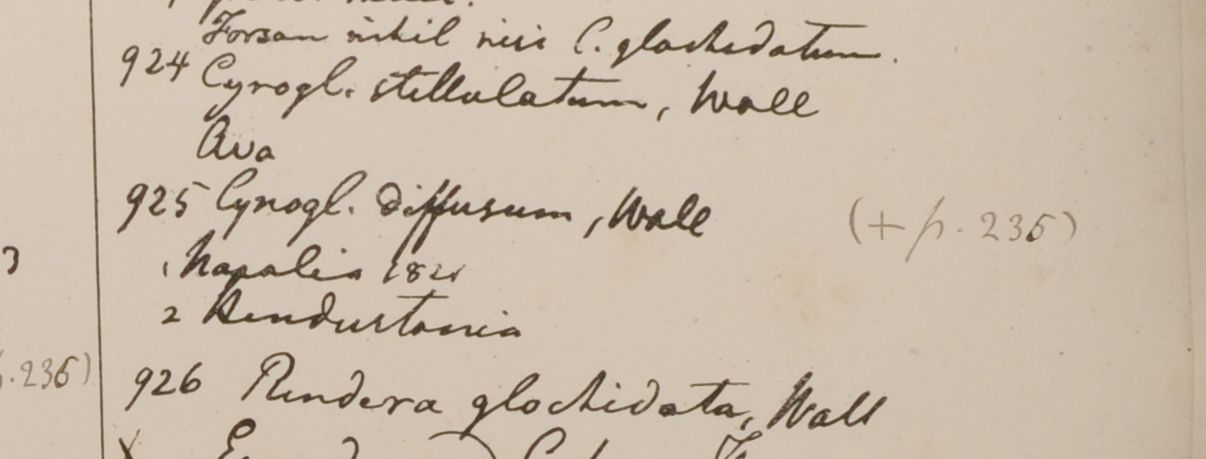 Forsan nihil nisi C. glochidatum.
924 Cynogl. stellulatum, Wall
Ava
925 Cynogl. diffusum, Wall (+ p. 236)
1 Napalia 1821
2 Hindustania
.236)
926 Rindera glochidata, Wall